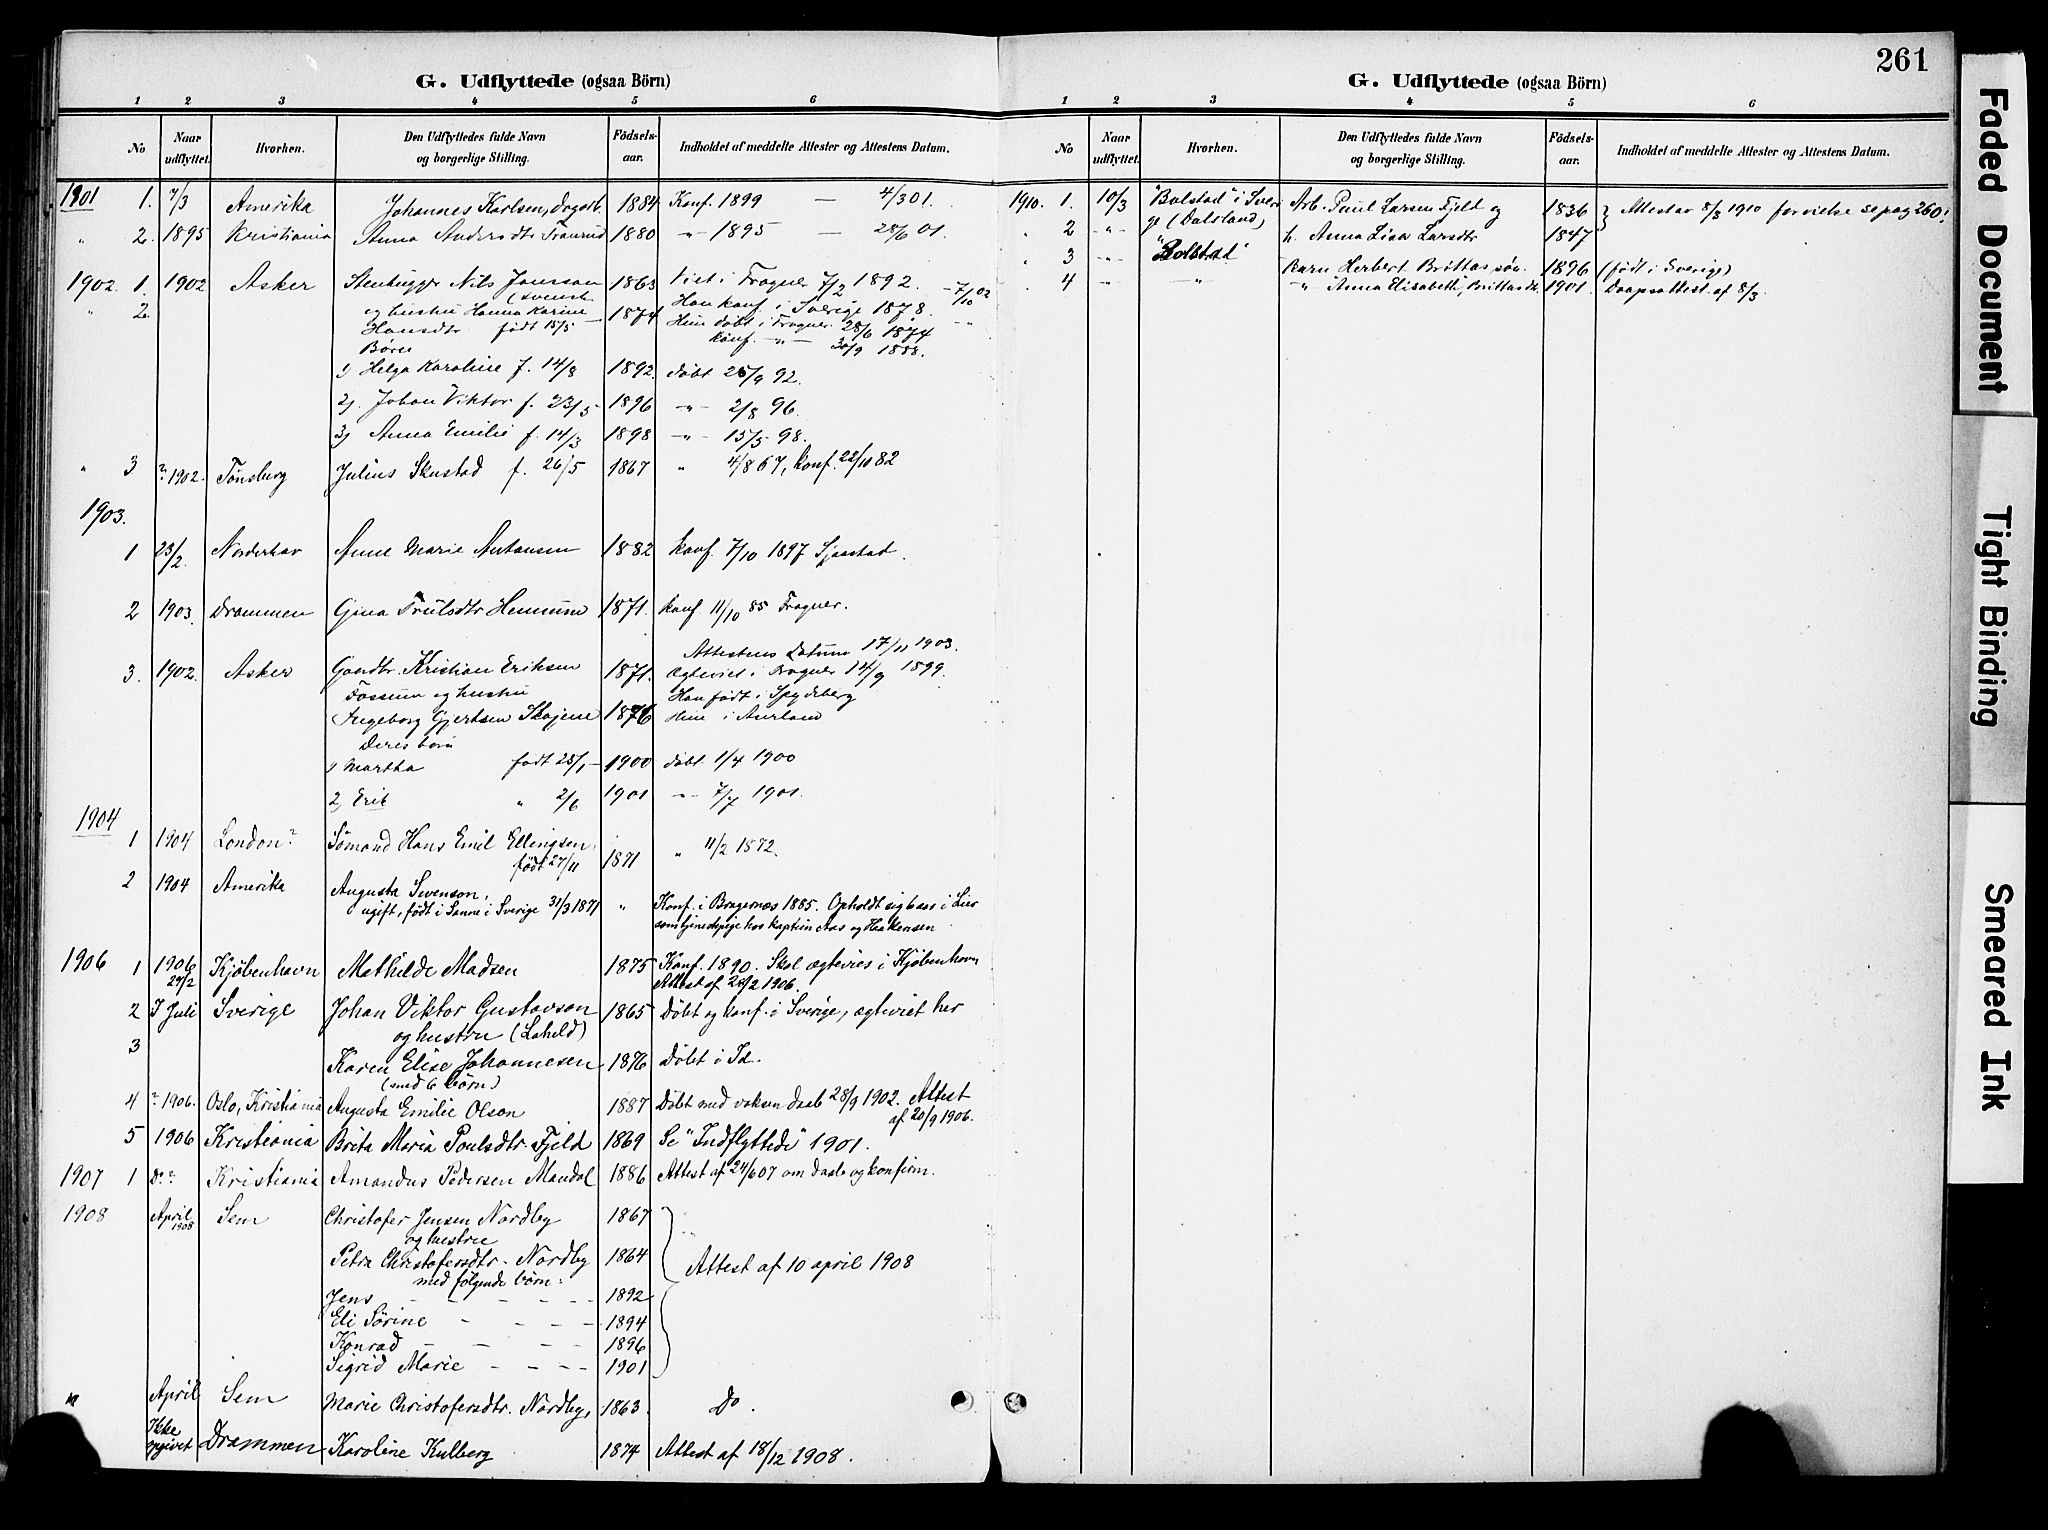 261
G. Udflyttede (ogsaa Börn)
1 2 3 4 5 6
No
Naar udflyttet.
Hvorhen.
Den Udflyttedes fulde Navn og borgerlige Stilling.
Födsels-aar.
Indholdet af meddelte Attester og Attestens Datum.
1901 1. 7/3 Amerika Johannes Karlsen, dagarb. 1884 Konf. 1899 — 4/3 01.
" 2. 1895 Kristiania Anna Andersdtr 1880 -"- 1895 — 28/6 01.
1902. 1. 1902 Asker Stenhugger Nils Jonsson 1863 Viet i Frogner 7/2 1892. - 7/10 02
(svensk Han konf. i Sverige 1878.
" 2. og hustru Hanna Karine 1874 Hun døbt i Frogner 28/6 1874
Hansdtr født 15/5 konf. -"- 30/9 1888.
Børn
1) Helga Karoline f. 14/8 1892. døbt 25/9 92.
2). Johan Viktor f. 23/5 1896 -"- 2/8 96.
3) Anna Emilie f. 14/3 1898 -"- 15/5 98.
" 3 ? 1902. Tønsberg Julius Skustad f. 26/5 1867 " 4/8 67, konf. 22/10 82
1903.
1 23/2. Norderhov Anne Marie Antonsen 1882 konf. 7/10 1897 Sjaastad.
2 1903. Drammen Gina Trulsdtr Hennum 1871. konf 11/10 85 Frogner.
Attestens Datum 17/11 1903.
3. 1902. Asker Gaardbr. Kristian Eriksen 1871. Ægteviet i Frogner 14/9 1899.
Fossum og hustru Han født i Spydeberg
Ingeborg Gjertsen Skajene 1876 Hun i Aurland
Deres børn
1) Martha født 25/1 - 1900 døbt 1/4 1900
2) Erik " 2/6 1901 -"- 7/7 1901.
1904
1 1904 London? Sømand Hans Emil Ellingsen, " 11/2 1872.
født 27/11 1871
2 1904 Amerika Augusta Svenson,
ugift, født i Sanne i Sverige 31/3 1871 " Konf. i Bragernæs 1885. Opholdt sig 6 aar i Lier
som tjenestepige hos kaptein Aas og Haakensen
1906 1 1906 27/2 Kjøbenhavn Mathilde Madsen 1875 Konf. 1890. Skal ægtevies i Kjøbenhavn
Attest af 28/2 1906.
2 I Juli Sverige Johan Viktor Gustavson 1865 Døbt og konf. i Sverige, ægteviet her
og hustru (Laheld)
3 Karen Elise Johannesen 1876 Døbt i Id.
(med 6 børn)
4 ? 1906. Oslo, Kristiania Augusta Emilie Olson 1887 Døbt med voksen daab 28/9 1902. Attest
af 20/9 1906.
5 1906 Kristiania Brita Maria Poulsdtr. Fjeld 1869 Se "Indflyttede" 1901.
1907 1 Do? Kristiania Amandus Pedersen Mandal 1886 Attest af 24/6 07 om daab og konfirm.
1908 April 1908 Sem Christofer Jensen Nordby 1867
og hustru
Petra Christofersdtr. Nordby 1864 Attest af 10 april 1908
med følgende børn:
Jens - - - - - 1892
Eli Sørine - - - - 1894
Konrad - - - - 1896
Sigrid Marie - - - - 1901
" April Sem Marie Christofersdtr. Nordby, 1863. Do.
Ikke opgivet Drammen Karoline Kulberg 1874 Attest af 18/12 1908.
G. Udflyttede (ogsaa Börn)
1 2 3 4 5 6
No
Naar udflyttet.
Hvorhen.
Den Udflyttedes fulde Navn og borgerlige Stilling.
Födsels-aar.
Indholdet af meddelte Attester og Attestens Datum.
1910. 1. 10/3 "Bolstad" i Sveri- Arb. Paul Larsen Fjeld og 1836 } Attest av 8/3 1910 for vielse se pag 260.
" 2 -"- ge (Dalsland) h. Anna Lisa Larsdtr 1847
" 3 -"- "Bolstad" Barn Herbert Brittas søn. 1896 (født i Sverige)
" 4 -"- -"- " Anna Elisabeth, Brittas dtr. 1901. Daapsattest af 8/3.
Faded Document
Tight Binding
Smeared Ink